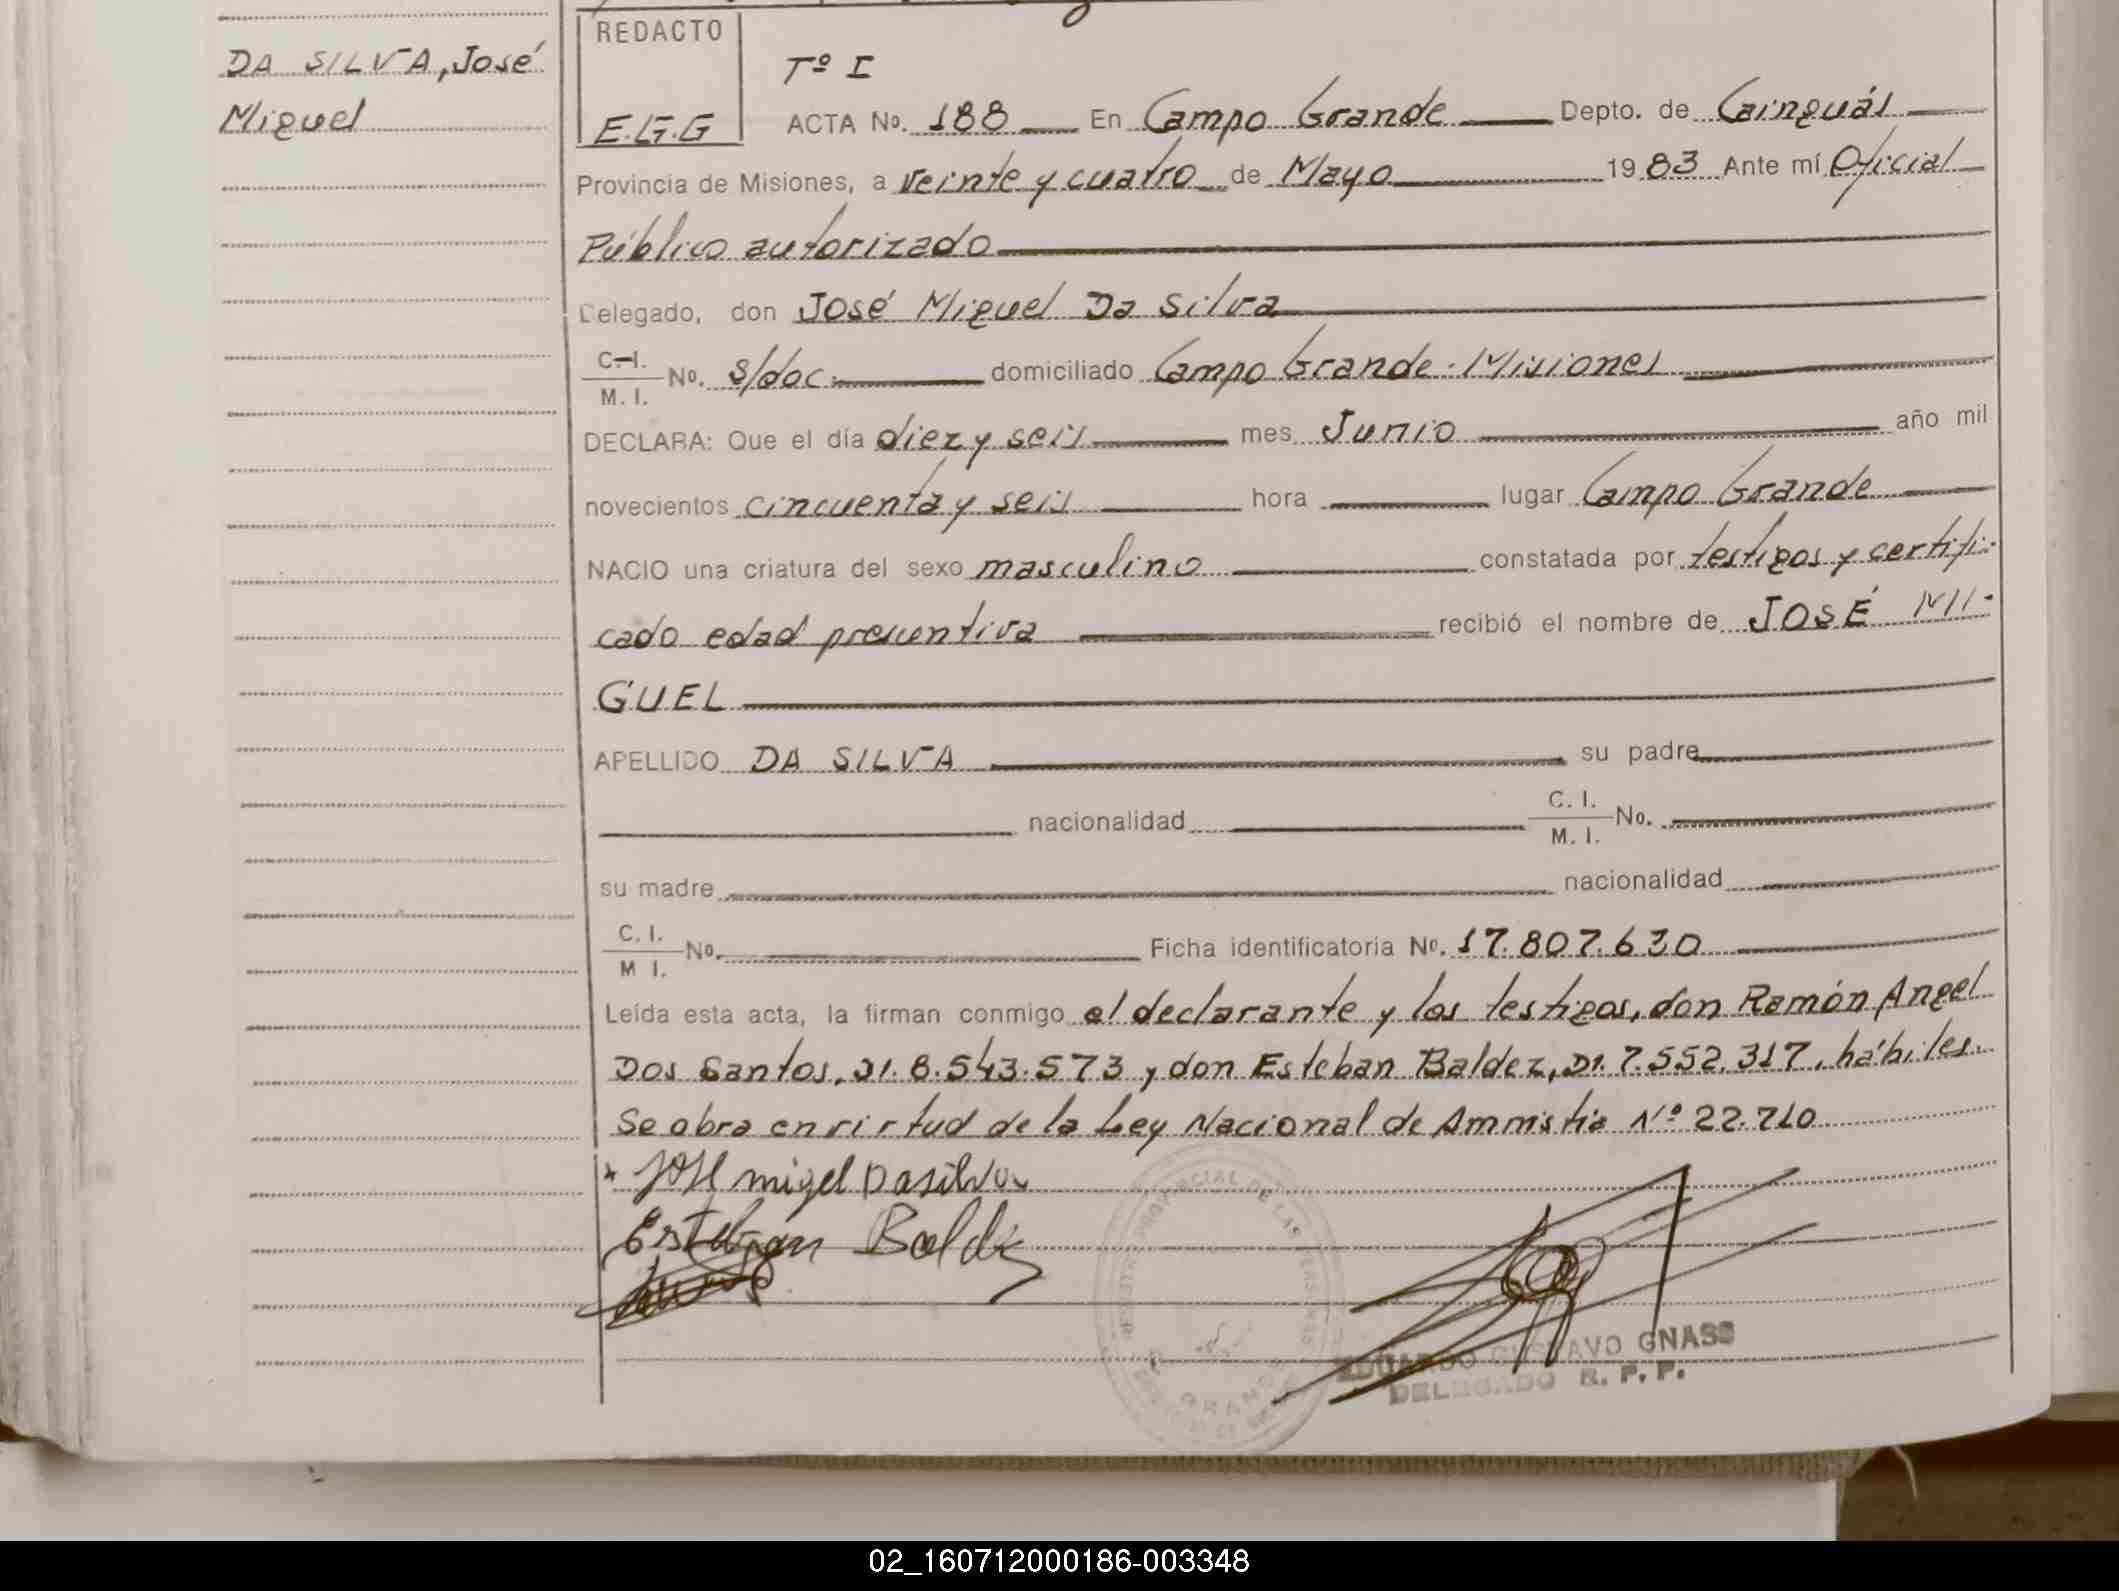 DA SILVA, José
Miguel
REDACTO
E.G.G
Tº I
ACTA No. 188 En Campo Grande Depto. de Cainguás
Provincia de Misiones, a veinte y cuatro de Mayo 1983 Ante mí Oficial
Público autorizado
Delegado, don José Miguel Da Silva
C.I.
M. I.
No. s/doc. domiciliado Campo Grande - Misiones
DECLARA: Que el día diez y seis mes Junio año mil
novecientos cincuenta y seis hora lugar Campo Grande
NACIO una criatura del sexo masculino constatada por testigos y certifi-
cado edad presuntiva recibió el nombre de JOSÉ MI-
GUEL
APELLIDO DA SILVA su padre
nacionalidad C. I.
M. I.
No.
su madre nacionalidad
C. I.
M I.
No. Ficha identificatoria No. 17.807.630
Leída esta acta, la firman conmigo el declarante y los testigos, don Ramón Angel
Dos Santos, DI. 8.543.573 y don Esteban Baldez, DI. 7.552.317, hábiles.
Se obra en virtud de la Ley Nacional de Amnistia Nº 22.710
José migel Dasilva
Esteban Baldez
REGISTRO PROVINCIAL DE LAS PERSONAS
GRANDE
EDUARDO GUSTAVO GNASS
DELEGADO R. P. P.
02_160712000186-003348